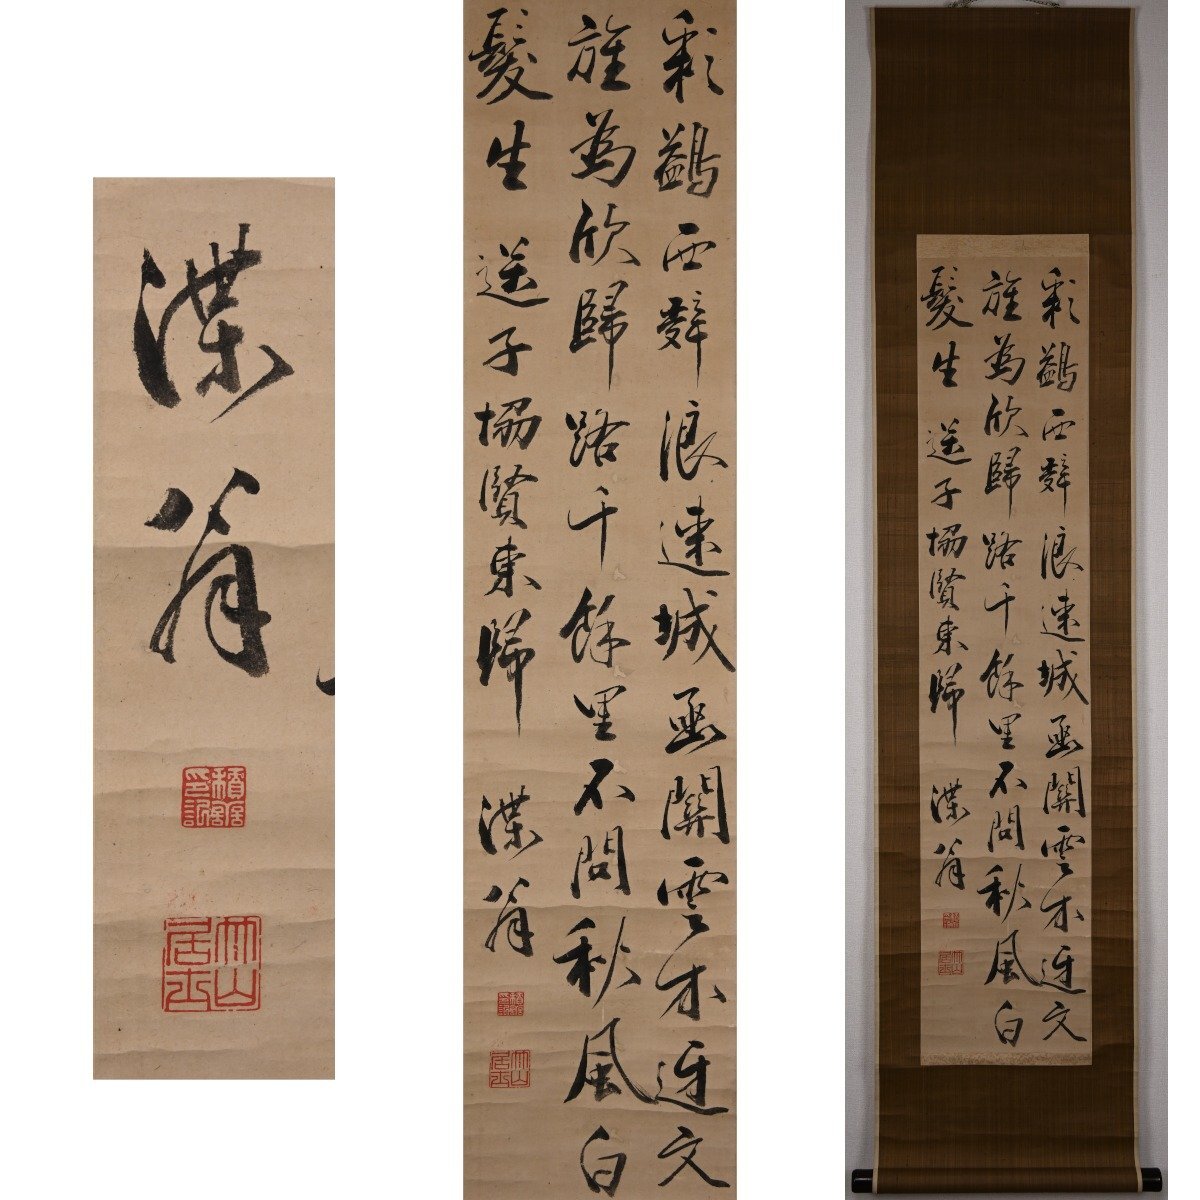 渫翁
積善印記
竹山居士
彩鷁西辭浪速城函關雲木迓文
旌為欣歸路千餘里不問秋風白
髮生 送子協賢東歸 渫翁
積善印記
竹山居士
彩鷁西辭浪速城函關雲木迓文
旌為欣歸路千餘里不問秋風白
髮生 送子協賢東歸 渫翁
竹山居士